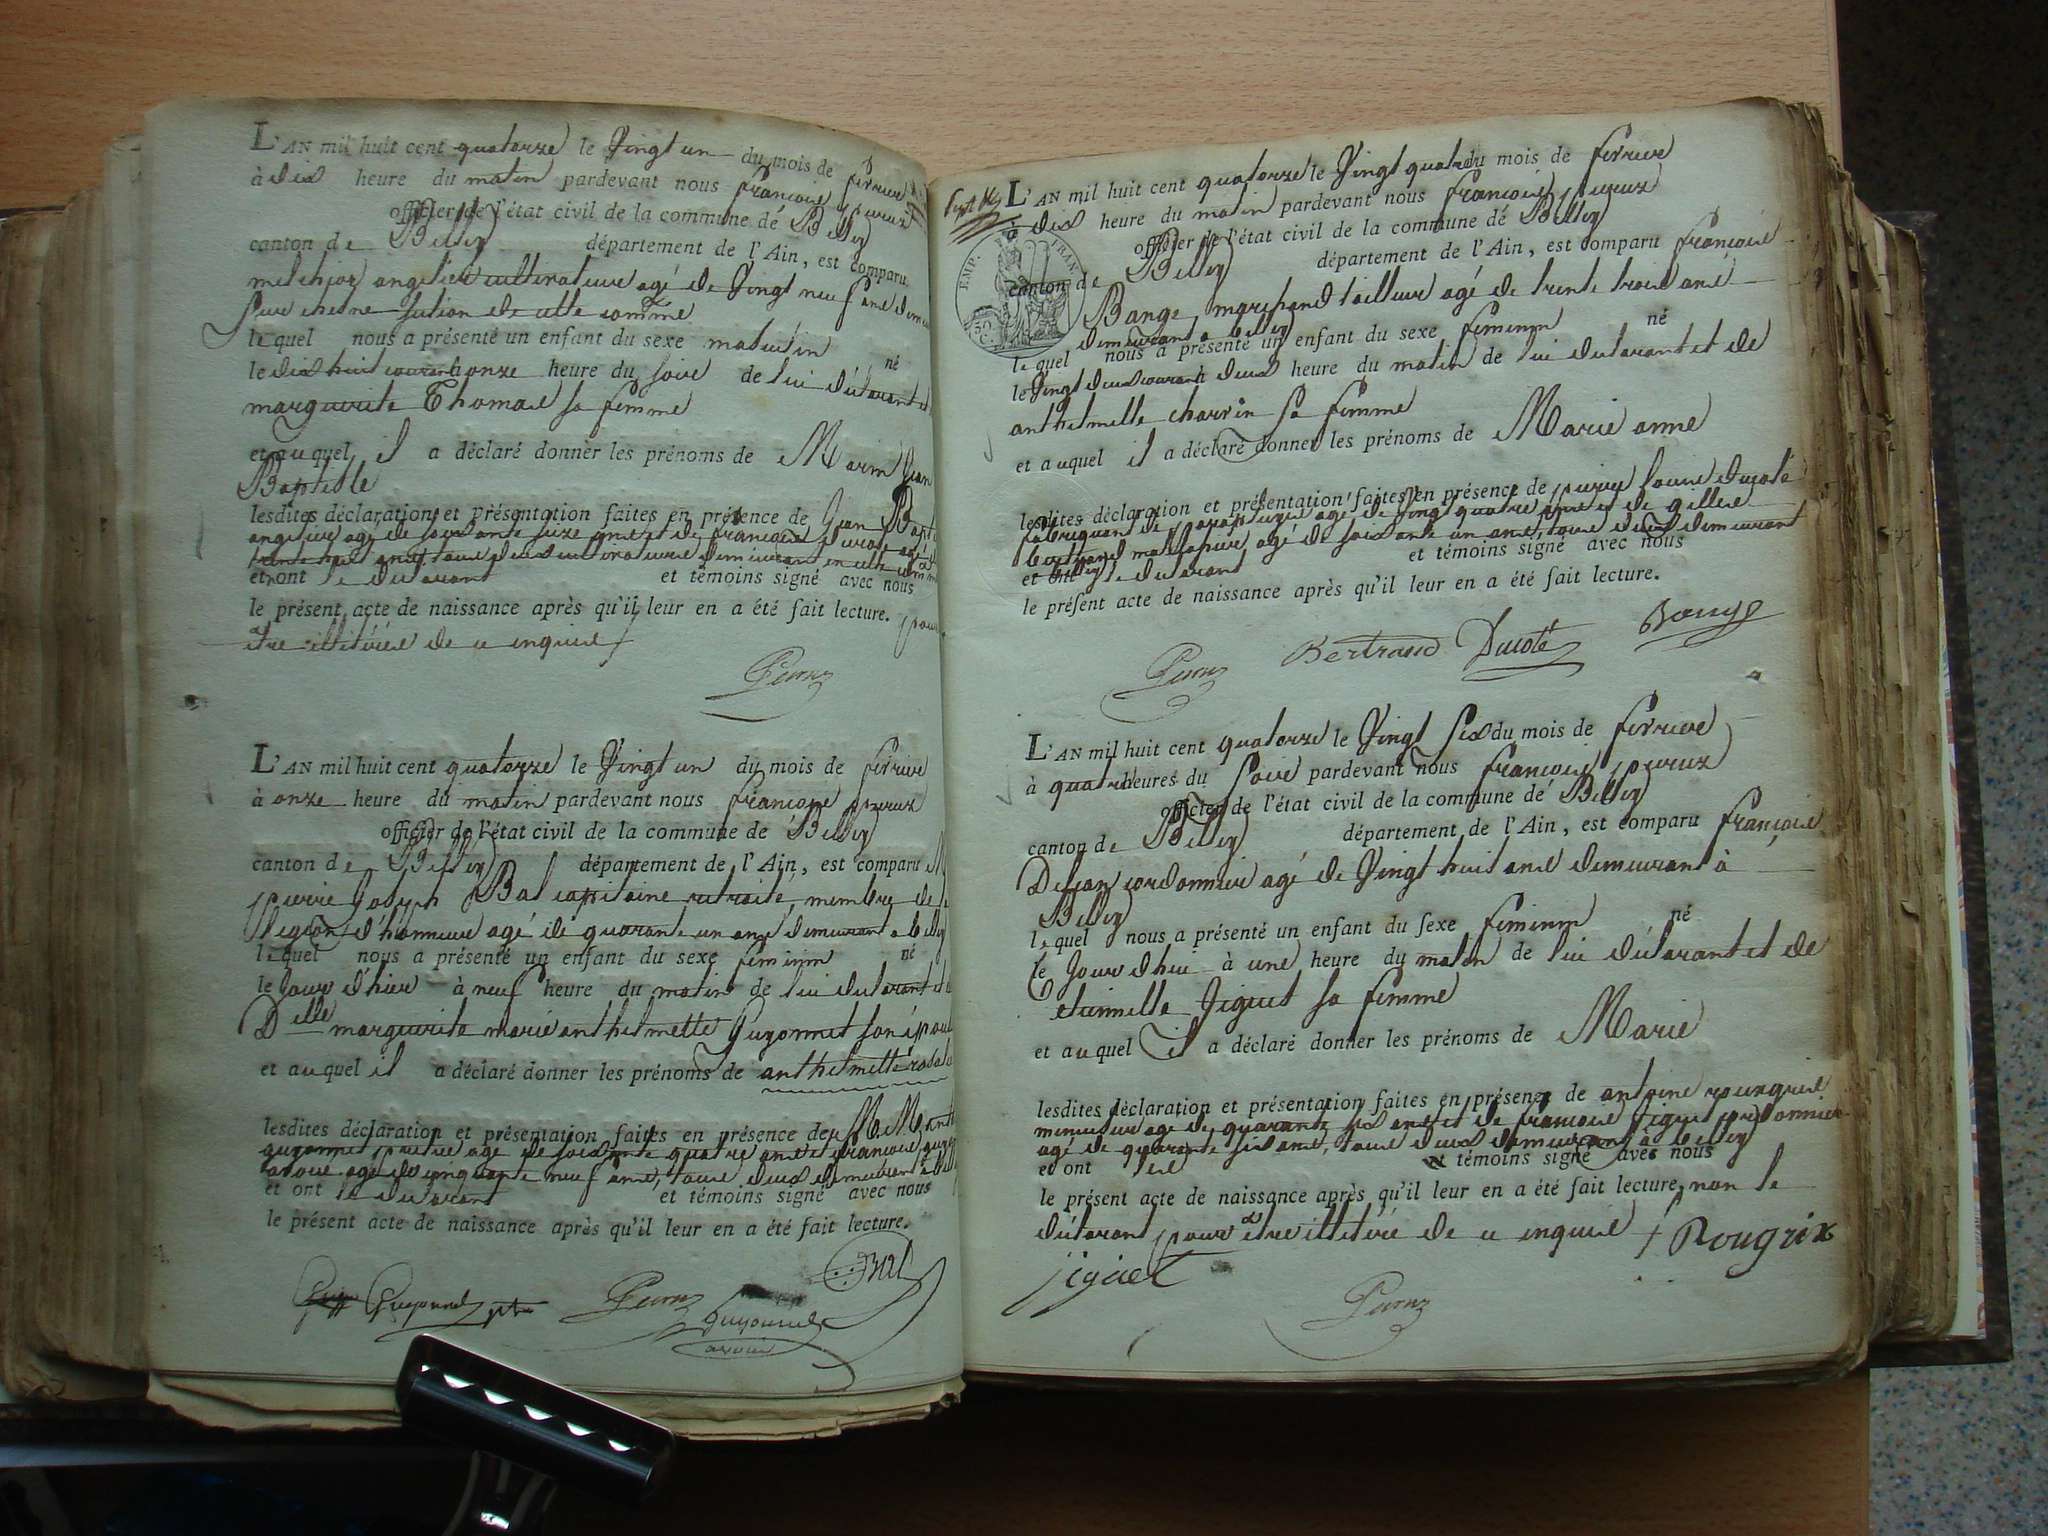 L'AN mil huit cent quatorze le Vingt un du mois de fevrier
à dix heure du matin pardevant nous françois peureux
officier de l'état civil de la commune de Belley
canton de Belley département de l'Ain, est comparu
melchior angelier cultivateur agé de Vingt neuf ans
section de cette comme
le quel nous a présenté un enfant du sexe masculin né
le dix huit courant à onze heure du soir de lui déclarant et
marguerite Thomas sa femme
et auquel il a déclaré donner les prénoms de Marin Jean
Baptiste
lesdites déclaration et présentation faites en présence de Jean Bapte
angelier agé de soixante seize ans et de françois agé de
trente huit ans, tous deux cultivateurs demeurant en cette comme
et ont le déclarant et témoins signé avec nous
le présent acte de naissance après qu'il leur en a été fait lecture. pour
être illitérés de ce enquis
L'AN mil huit cent quatorze le Vingt un du mois de fevrier
à onze heure du matin pardevant nous françois peureux
officier de l'état civil de la commune de Belley
canton de Belley département de l'Ain, est comparu M
pierre Joseph Bal capitaine retraité, membre de la
legion d'honneur agé de quarante un ans demeurant a belley
le quel nous a présenté un enfant du sexe féminin né
le Jour d'hier à neuf heure du matin de lui déclarant et de
Dlle marguerite marie anthelmette Guyonnet son épouse
et auquel il a déclaré donner les prénoms de anthelmette rosalie
lesdites déclaration et présentation faites en présence de M. M. anth
guyonnet pretre agé de soixante quatre ans et françois guyonnet
avoué agé de cinquante neuf ans, tous deux demeurant à belley
et ont le déclarant et témoins signé avec nous
le présent acte de naissance après qu'il leur en a été fait lecture.
Bal
Guyonnet ptre
Guyonnet
avoué
L'AN mil huit cent quatorze le Vingt quatre du mois de fevrier
à dix heure du matin pardevant nous françois peureux
officier de l'état civil de la commune de Belley
EMP. FRAN.
50 C.
canton de Belley département de l'Ain, est comparu françois
Bange marchand tailleur agé de trente trois ans
demeurant a belley
le quel nous a présenté un enfant du sexe féminin né
le Vingt deux courant à deux heure du matin de lui déclarant et de
anthelmette charvin sa femme
et auquel il a déclaré donner les prénoms de Marie anne
lesdites déclaration et présentation faites en présence de pierre Ducoté
fabriquant de agé de Vingt quatre ans et de gilles
bertrand agé de soixante un ans, tous deux demeurant
et ont le déclarant et témoins signé avec nous
le présent acte de naissance après qu'il leur en a été fait lecture.
Bertrand Ducoté Bange
L'AN mil huit cent quatorze le Vingt six du mois de fevrier
à quatre heures du soir pardevant nous françois peureux
officier de l'état civil de la commune de Belley
canton de Belley département de l'Ain, est comparu françois
Dejean cordonnier agé de Vingt huit ans demeurant à
Belley
le quel nous a présenté un enfant du sexe féminin né
le Jour d'hui à une heure du matin de lui déclarant et de
etiennette Jiguet sa femme
et auquel il a déclaré donner les prénoms de Marie
lesdites déclaration et présentation faites en présence de antoine
menuisier agé de quarante six ans et de françois Jiguet cordonnier
agé de quarante six ans, tous deux demeurant à belley
et ont les témoins signé avec nous
le présent acte de naissance après qu'il leur en a été fait lecture, non le
déclarant pour être illitéré de ce enquis Rougrix
jiguet